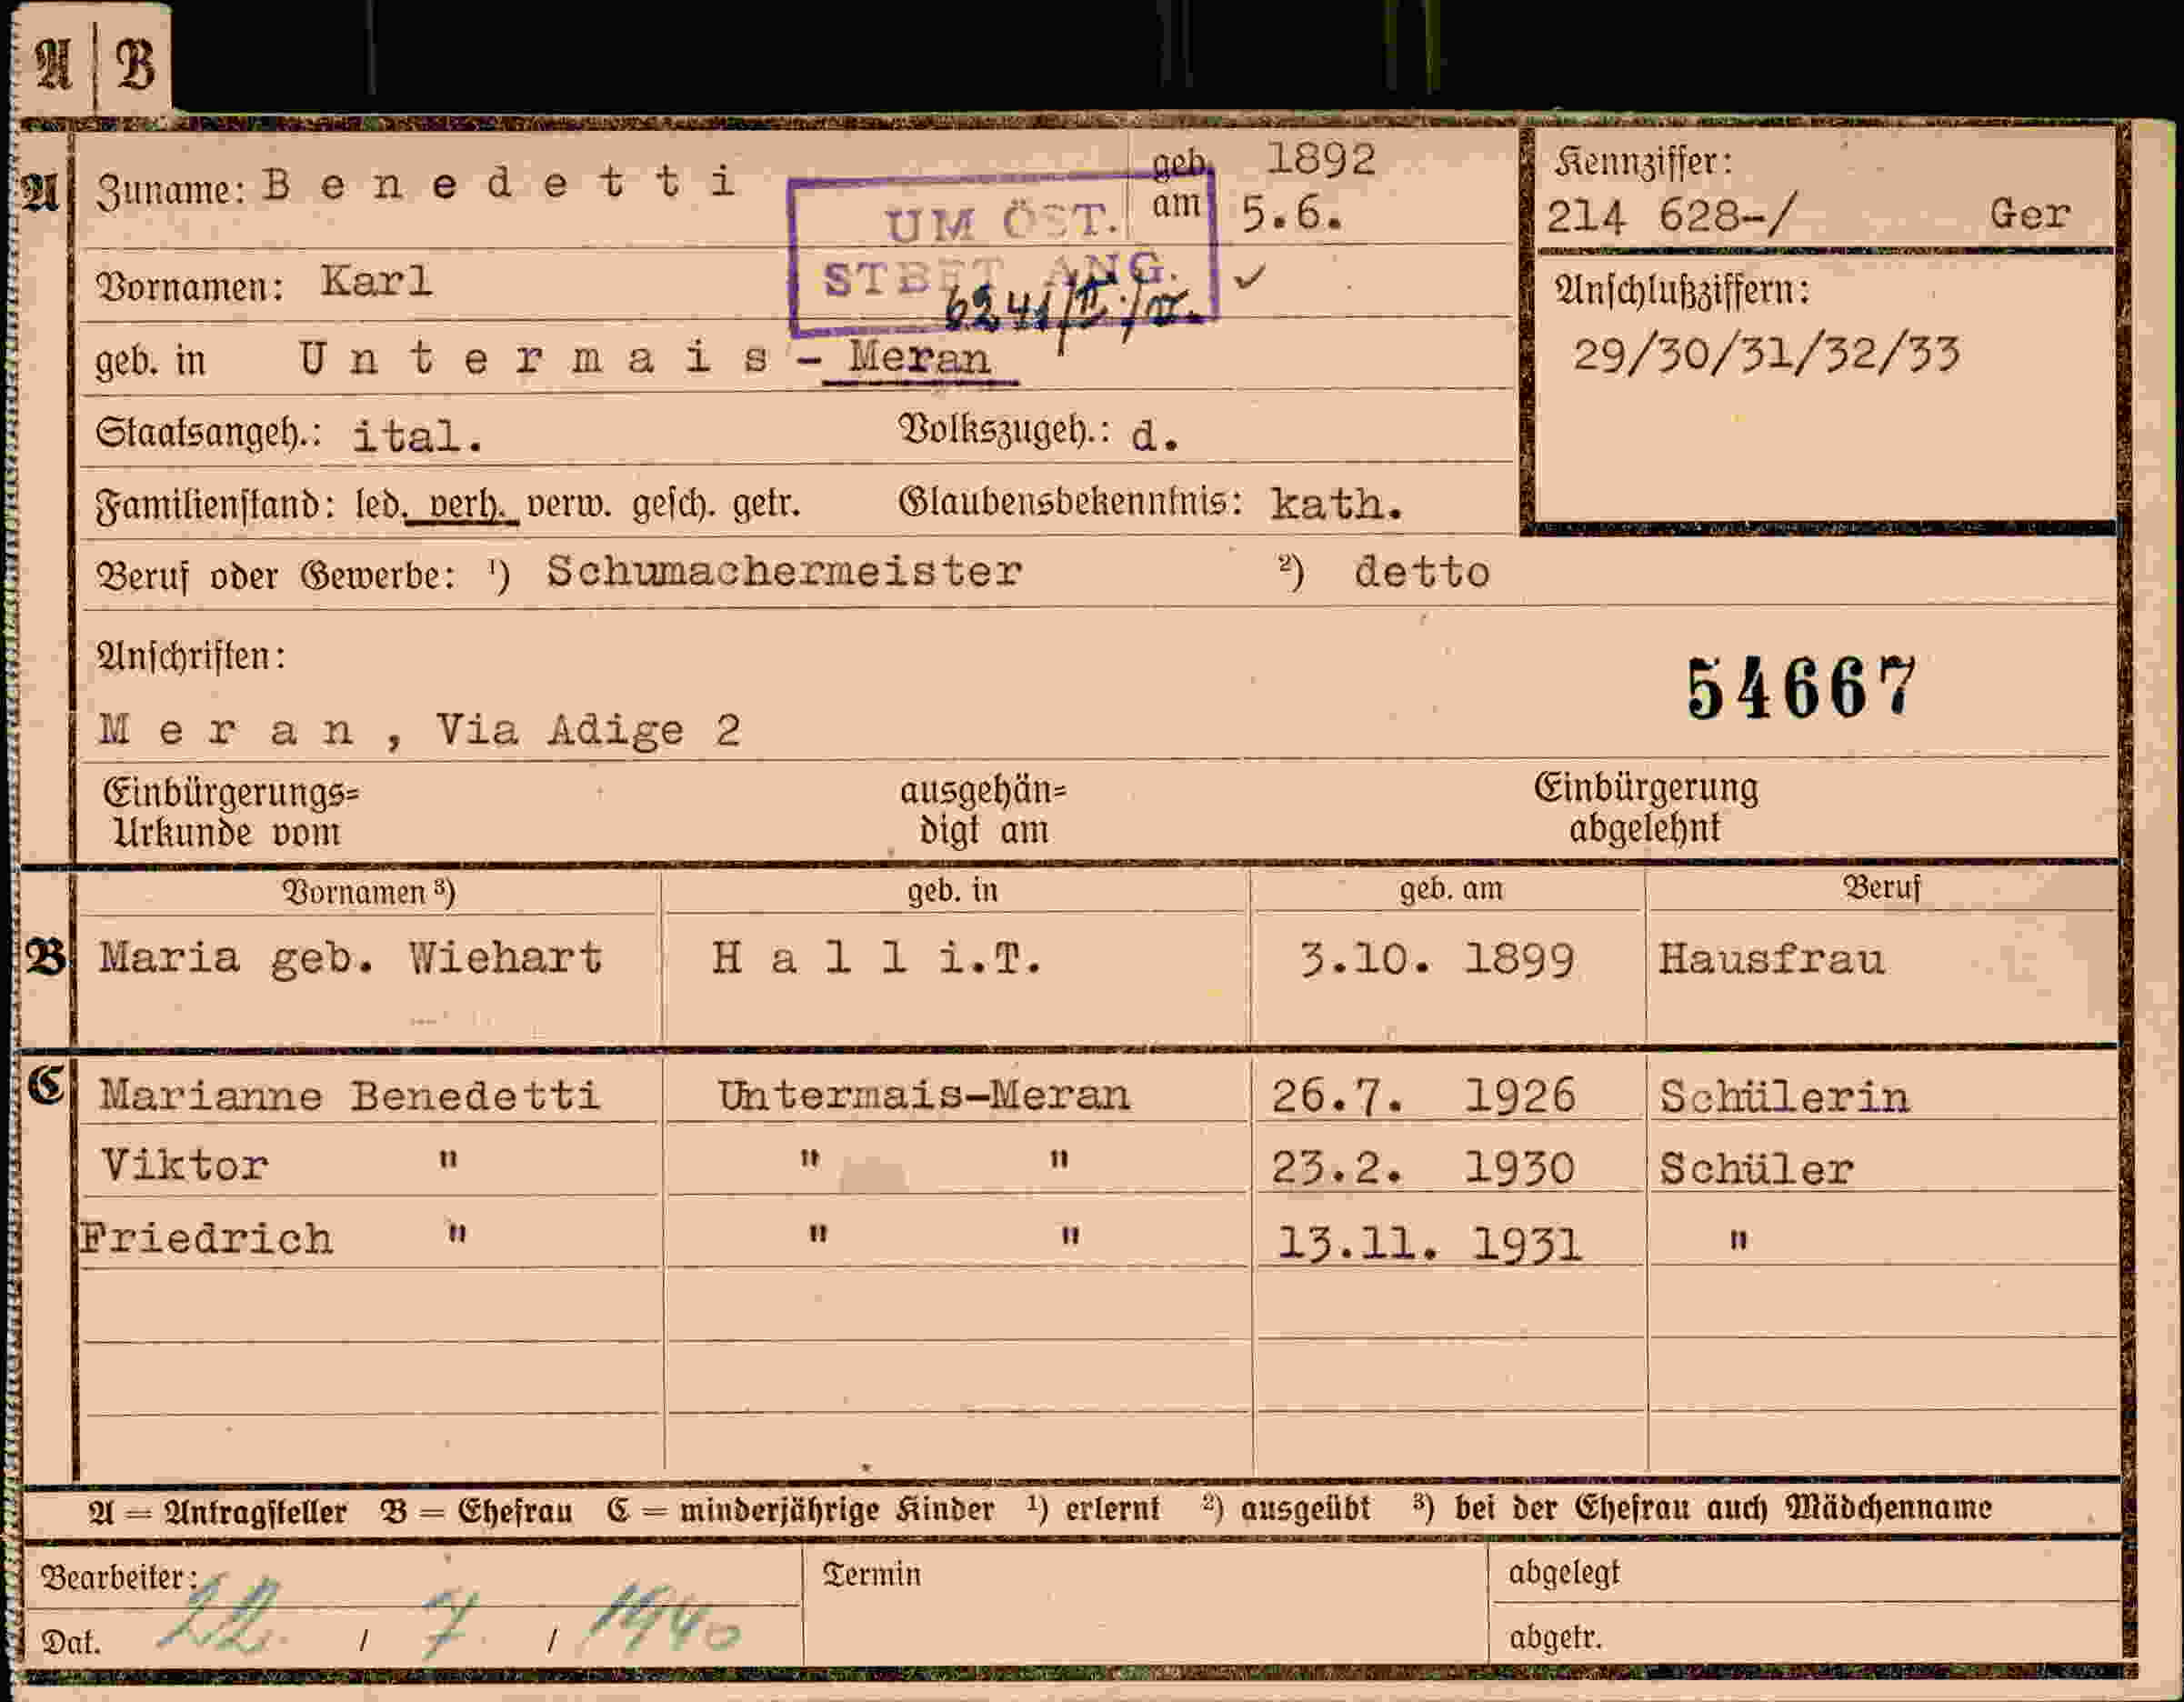 A | B
A Zuname: B e n e d e t t i geb. am 1892 5.6.
UM ÖST.
STBET ANG.
Kennziffer:
214 628-/ Ger
Vornamen: Karl ✓
Anschlußziffern:
29/30/31/32/33
geb. in U n t e r m a i s - Meran
Staatsangeh.: ital. Volkszugeh.: d.
Familienstand: led. verh. verw. gesch. getr. Glaubensbekenntnis: kath.
Beruf oder Gewerbe: ¹) Schumachermeister ²) detto
Anschriften:
54667
M e r a n , Via Adige 2
Einbürgerungs= ausgehän= Einbürgerung
Urkunde vom digt am abgelehnt
Vornamen ³) geb. in geb. am Beruf
B Maria geb. Wiehart H a l l i.T. 3.10. 1899 Hausfrau
C Marianne Benedetti Untermais-Meran 26.7. 1926 Schülerin
Viktor " " " 23.2. 1930 Schüler
Friedrich " " " 13.11. 1931 "
A = Antragsteller B = Ehefrau C = minderjährige Kinder ¹) erlernt ²) ausgeübt ³) bei der Ehefrau auch Mädchenname
Bearbeiter: Termin abgelegt
Dat. 22. / 7. / 1940 abgetr.